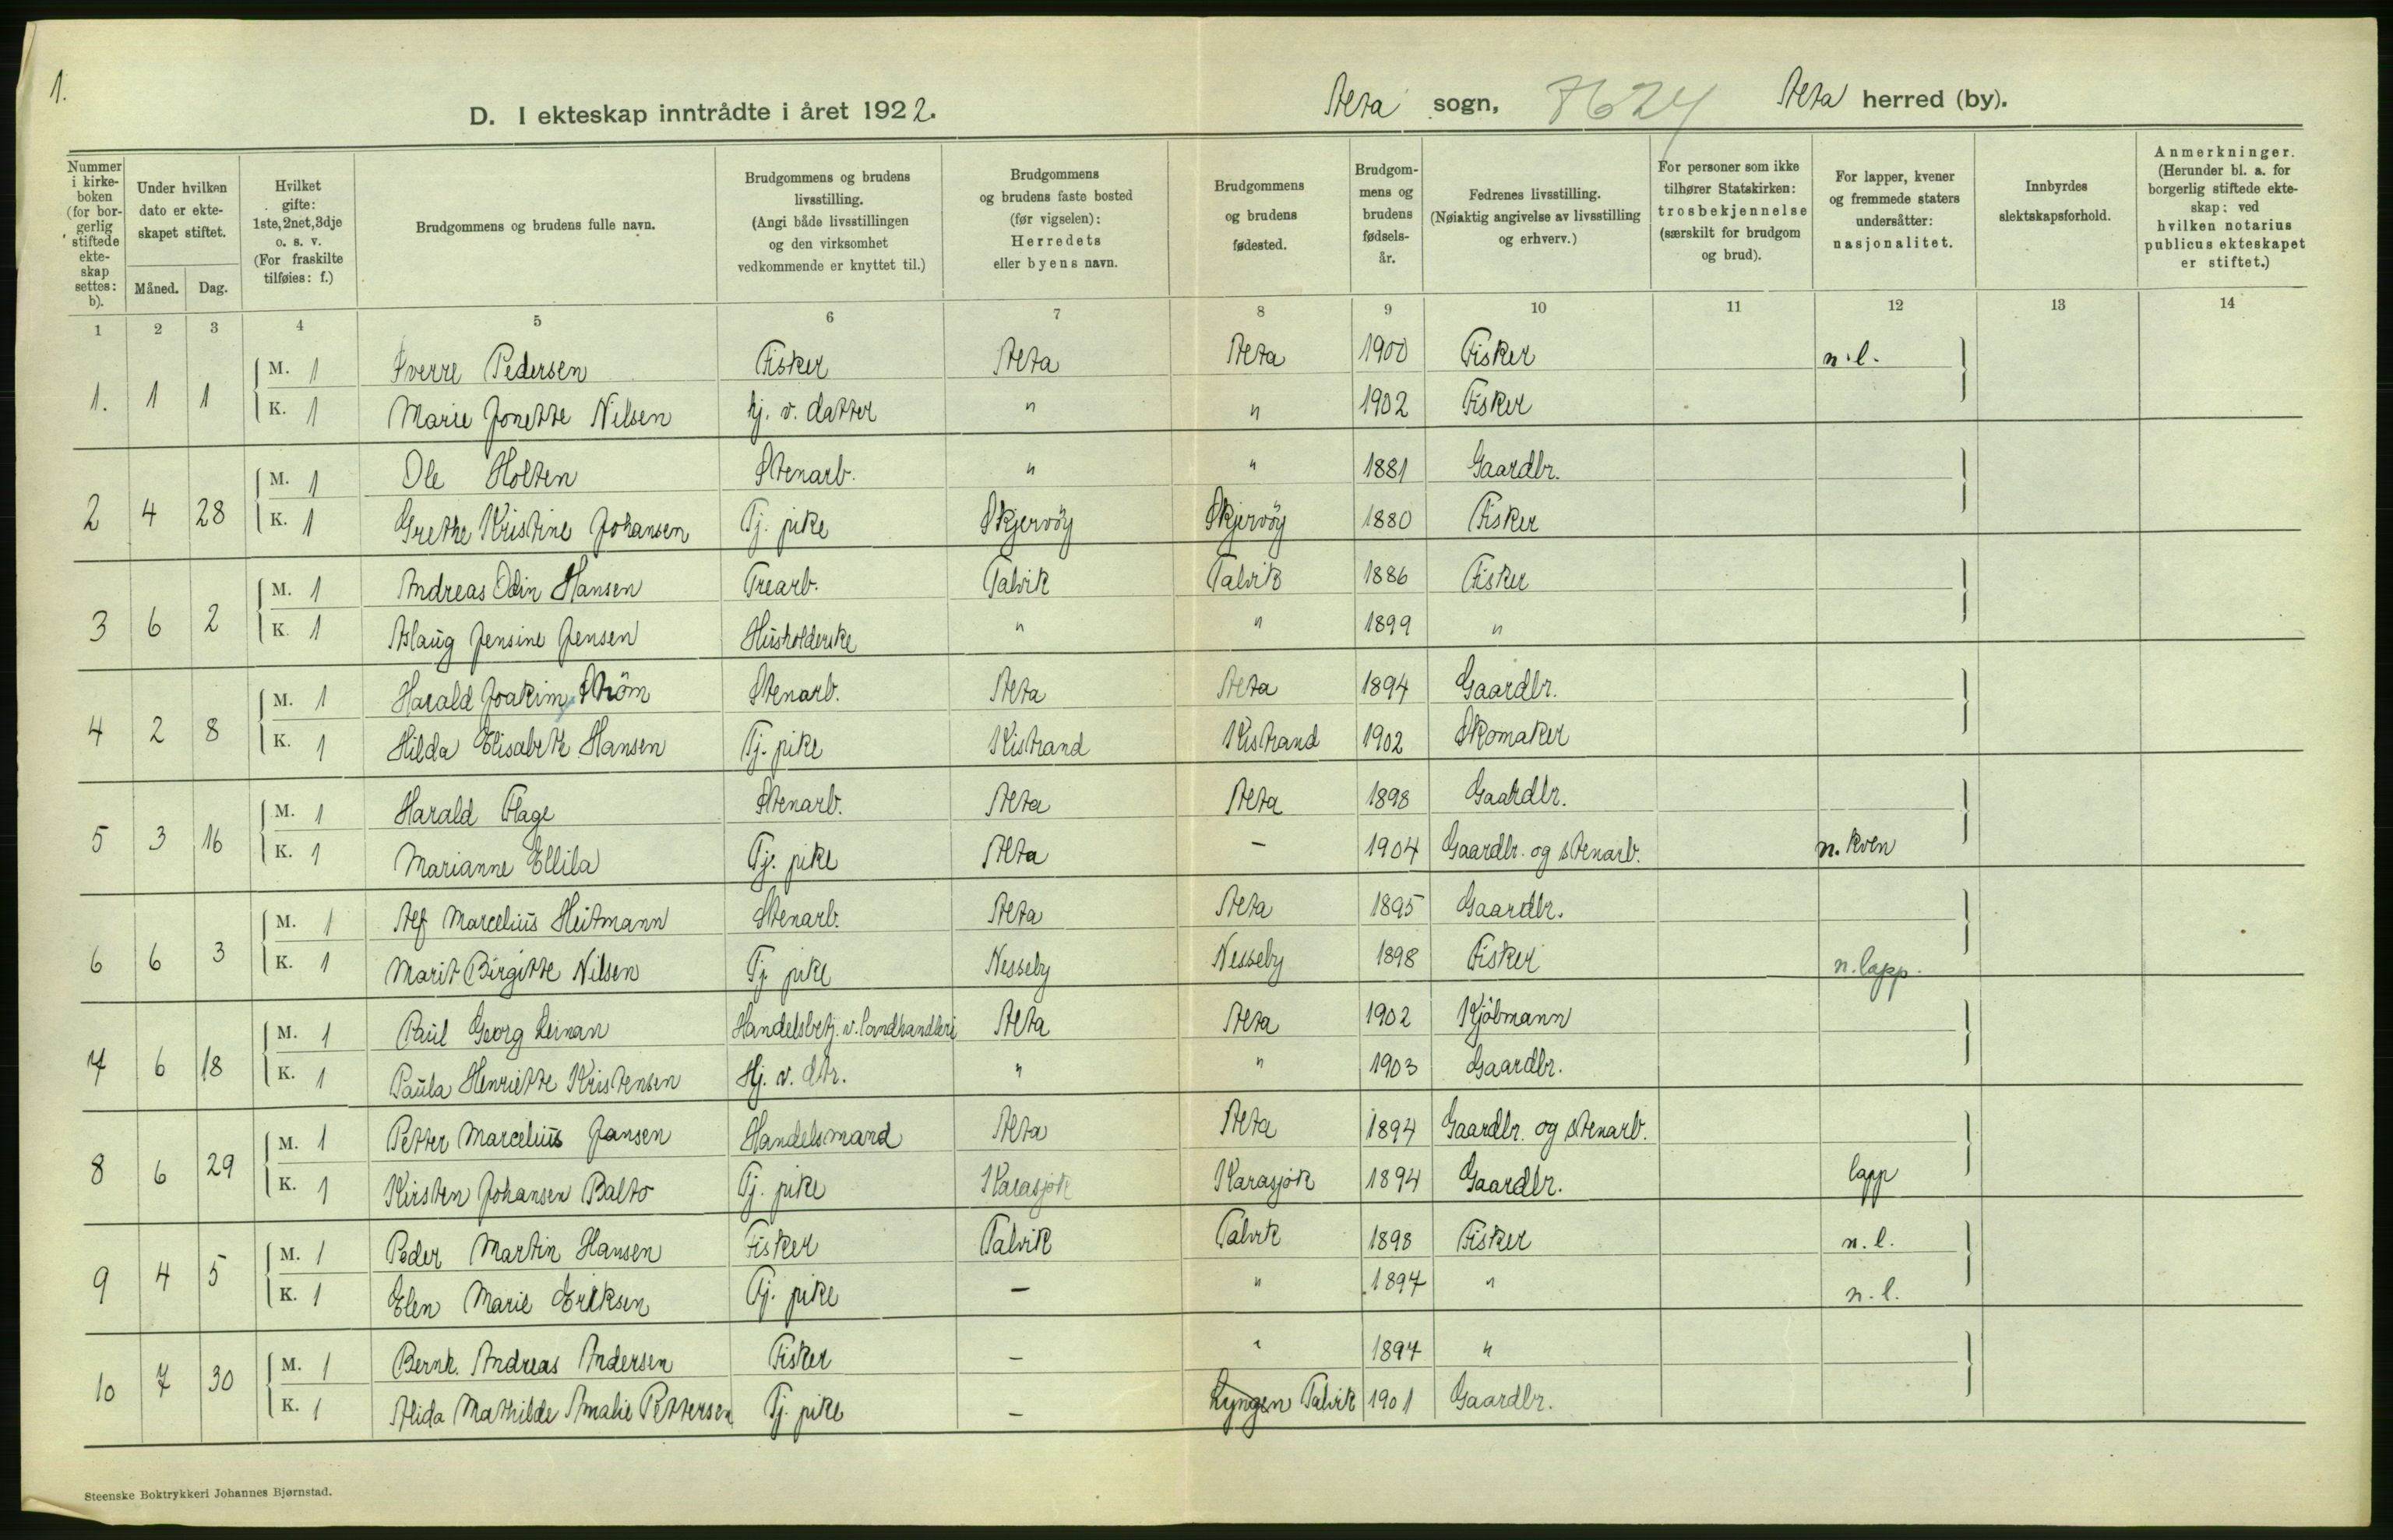 1.
D. I ekteskap inntrådte i året 1922.
Alta sogn, 7624 Alta herred (by).
Nummer i kirke-boken (for bor-gerlig stiftede ekte-skap settes: b).
Under hvilken dato er ekte-skapet stiftet.
Måned. Dag.
Hvilket gifte: 1ste, 2net, 3dje o. s. v. (For fraskilte tilføies: f.)
Brudgommens og brudens fulle navn.
Brudgommens og brudens livsstilling. (Angi både livsstillingen og den virksomhet vedkommende er knyttet til.)
Brudgommens og brudens faste bosted (før vigselen): Herredets eller byens navn.
Brudgommens og brudens fødested.
Brudgom-mens og brudens fødsels-år.
Fedrenes livsstilling. (Nøiaktig angivelse av livsstilling og erhverv.)
For personer som ikke tilhører Statskirken: trosbekjennelse (særskilt for brudgom og brud).
For lapper, kvener og fremmede staters undersåtter: nasjonalitet.
Innbyrdes slektskapsforhold.
Anmerkninger. (Herunder bl. a. for borgerlig stiftede ekte-skap: ved hvilken notarius publicus ekteskapet er stiftet.)
1 2 3 4 5 6 7 8 9 10 11 12 13 14
1. 1 1 M. 1 Sverre Pedersen Fisker Alta Alta 1900 Fisker n.l.
K. 1 Marie Jonette Nilsen hj. v. datter " " 1902 Fisker
2 4 28 M. 1 Ole Holten Stenarb. " " 1881 Gaardbr.
K. 1 Grethe Kristine Johansen Tj. pike Skjervöy Skjervöy 1880 Fisker
3 6 2 M. 1 Andreas Odin Hansen Trearb. Talvik Talvik 1886 Fisker
K. 1 Aslaug Jensine Jensen Husholderske " " 1899 "
4 2 8 M. 1 Harald Joakim Ström Stenarb. Alta Alta 1894 Gaardbr.
K. 1 Hilda Elisabeth Hansen Tj. pike Kistrand Kistrand 1902 Skomaker
5 3 16 M. 1 Harald Flage Stenarb. Alta Alta 1898 Gaardbr.
K. 1 Marianne Ellila Tj. pike Alta - 1904 Gaardbr. og stenarb. n. kven
6 6 3 M. 1 Alf Marcelius Heitmann Stenarb. Alta Alta 1895 Gaardbr.
K. 1 Marit Birgitte Nilsen Tj. pike Nesseby Nesseby 1898 Fisker n. lapp.
7 6 18 M. 1 Paul Georg Leinan Handelsbetj. v. landhandleri Alta Alta 1902 Kjöbmann
K. 1 Paula Henriette Kristensen Hj. v. dtr. " " 1903 Gaardbr.
8 6 29 M. 1 Petter Marcelius Jansen Handelsmand Alta Alta 1894 Gaardbr. og stenarb.
K. 1 Kirsten Johansen Balto Tj. pike Karasjok Karasjok 1894 Gaardbr. lapp
9 4 5 M. 1 Peder Martin Hansen Fisker Talvik Talvik 1898 Fisker n. l.
K. 1 Elen Marie Eriksen Tj. pike - " 1897 " n. l.
10 7 30 M. 1 Bernh. Andreas Andersen Fisker - " 1897 "
K. 1 Alida Mathilde Amalie Pettersen Tj. pike - Lyngen Talvik 1901 Gaardbr.
Steenske Boktrykkeri Johannes Bjørnstad.